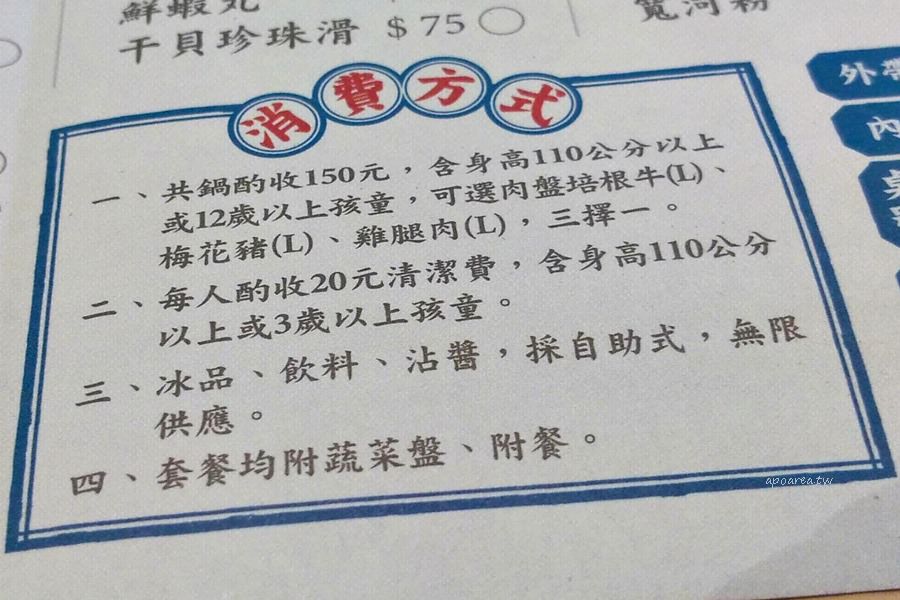 鮮蝦丸
干貝珍珠滑 $75
寬河粉
外帶
內
消費方式
一、共鍋酌收150元，含身高110公分以上
或12歲以上孩童，可選肉盤培根牛(L)、
梅花豬(L)、雞腿肉(L)，三擇一。
二、每人酌收20元清潔費，含身高110公分
以上或3歲以上孩童。
三、冰品、飲料、沾醬，採自助式，無限
供應。
四、套餐均附蔬菜盤、附餐。
apoarea.tw